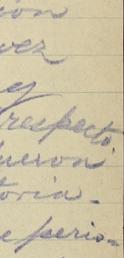 ción
vez
y
respecto
fueron
toria.
e perio-